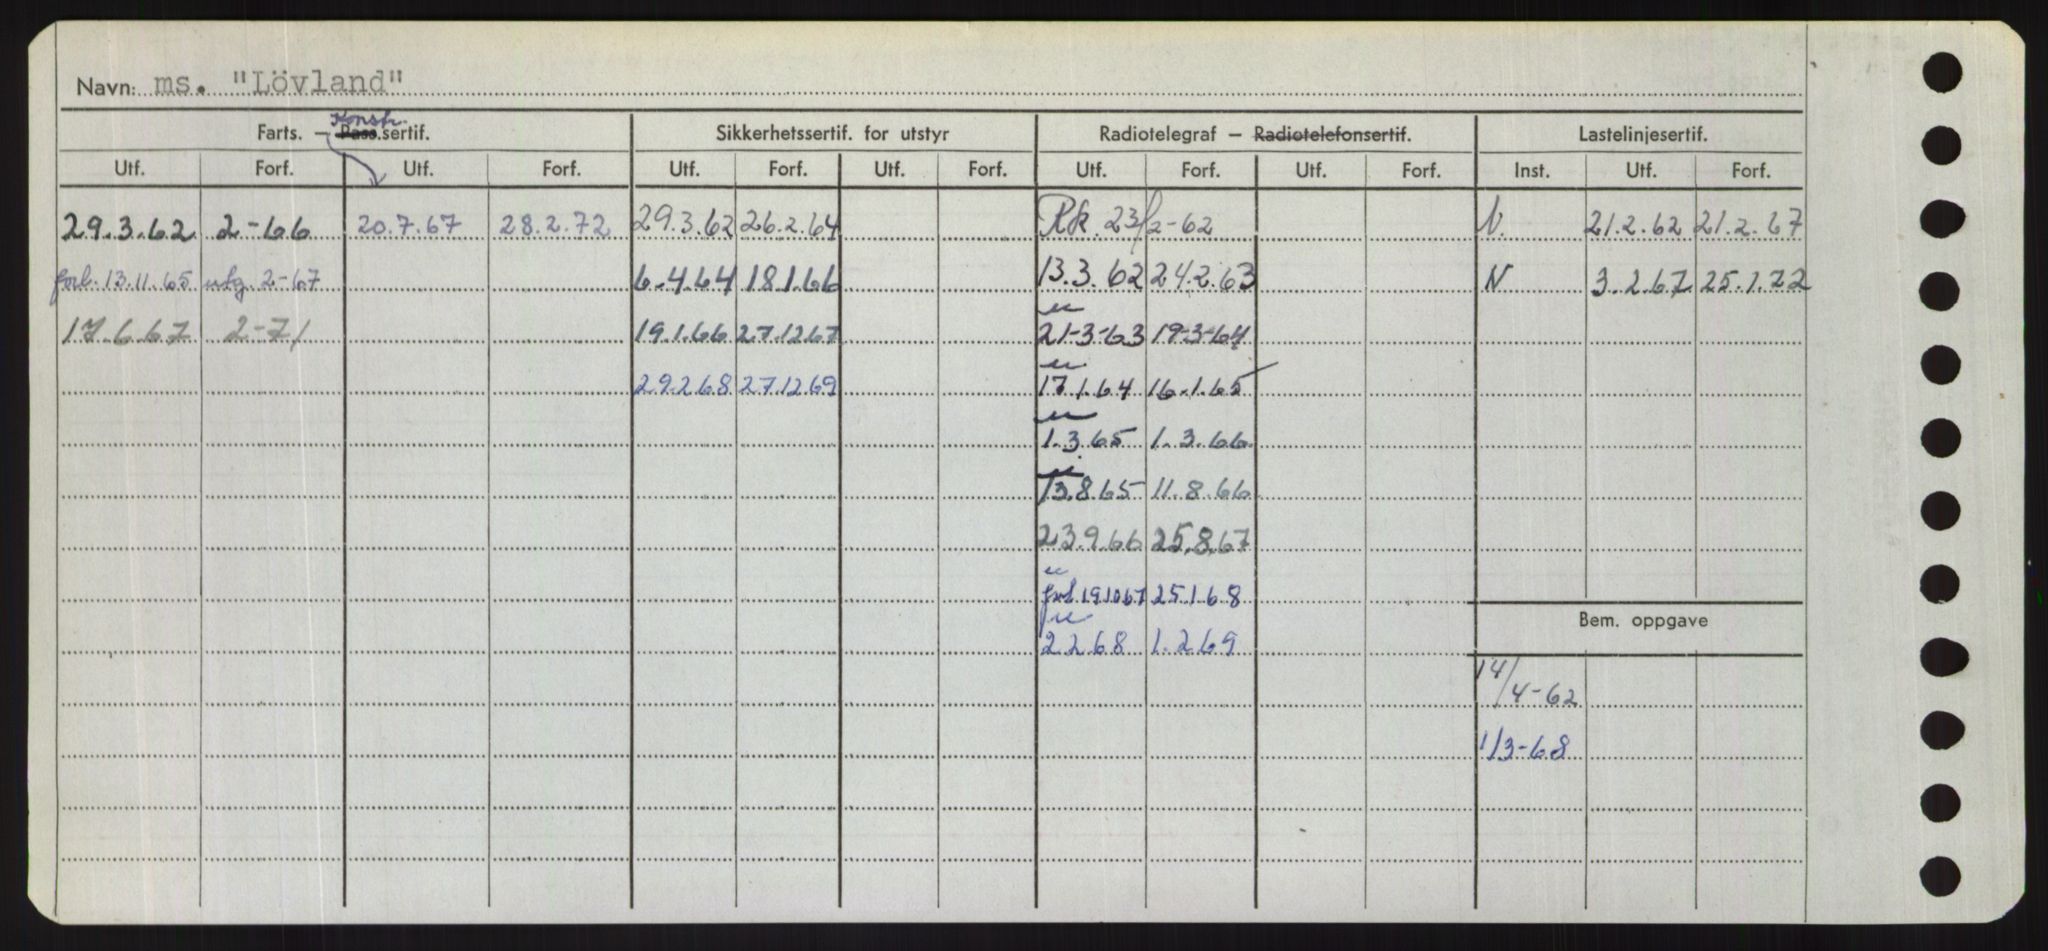 Navn: ms. "Lövland"
Konstr.
Farts. — Pass.sertif. Sikkerhetssertif. for utstyr Radiotelegraf — Radiotelefonsertif. Lastelinjesertif.
Utf. Forf. Utf. Forf. Utf. Forf. Utf. Forf. Utf. Forf. Utf. Forf. Inst. Utf. Forf.
29.3.62 2-66 20.7.67 28.2.72 29.3.62 26.2.64 Rk. 23/2-62 N. 21.2.62 21.2.67
forl. 13.11.65 utg. 2-67 6.4.64 18.1.66 13.3.62 24.2.63 N 3.2.67 25.1.72
17.6.67 2-71 19.1.66 27.12.67 21-3-63 19-3-64
29.2.68 27.12.69 17.1.64 16.1.65
1.3.65 1.3.66
13.8.65 11.8.66
23.9.66 25.8.67
forl 19.10.67 25.1.68
Bem. oppgave
2.2.68 1.2.69
14/4-62
1/3-68